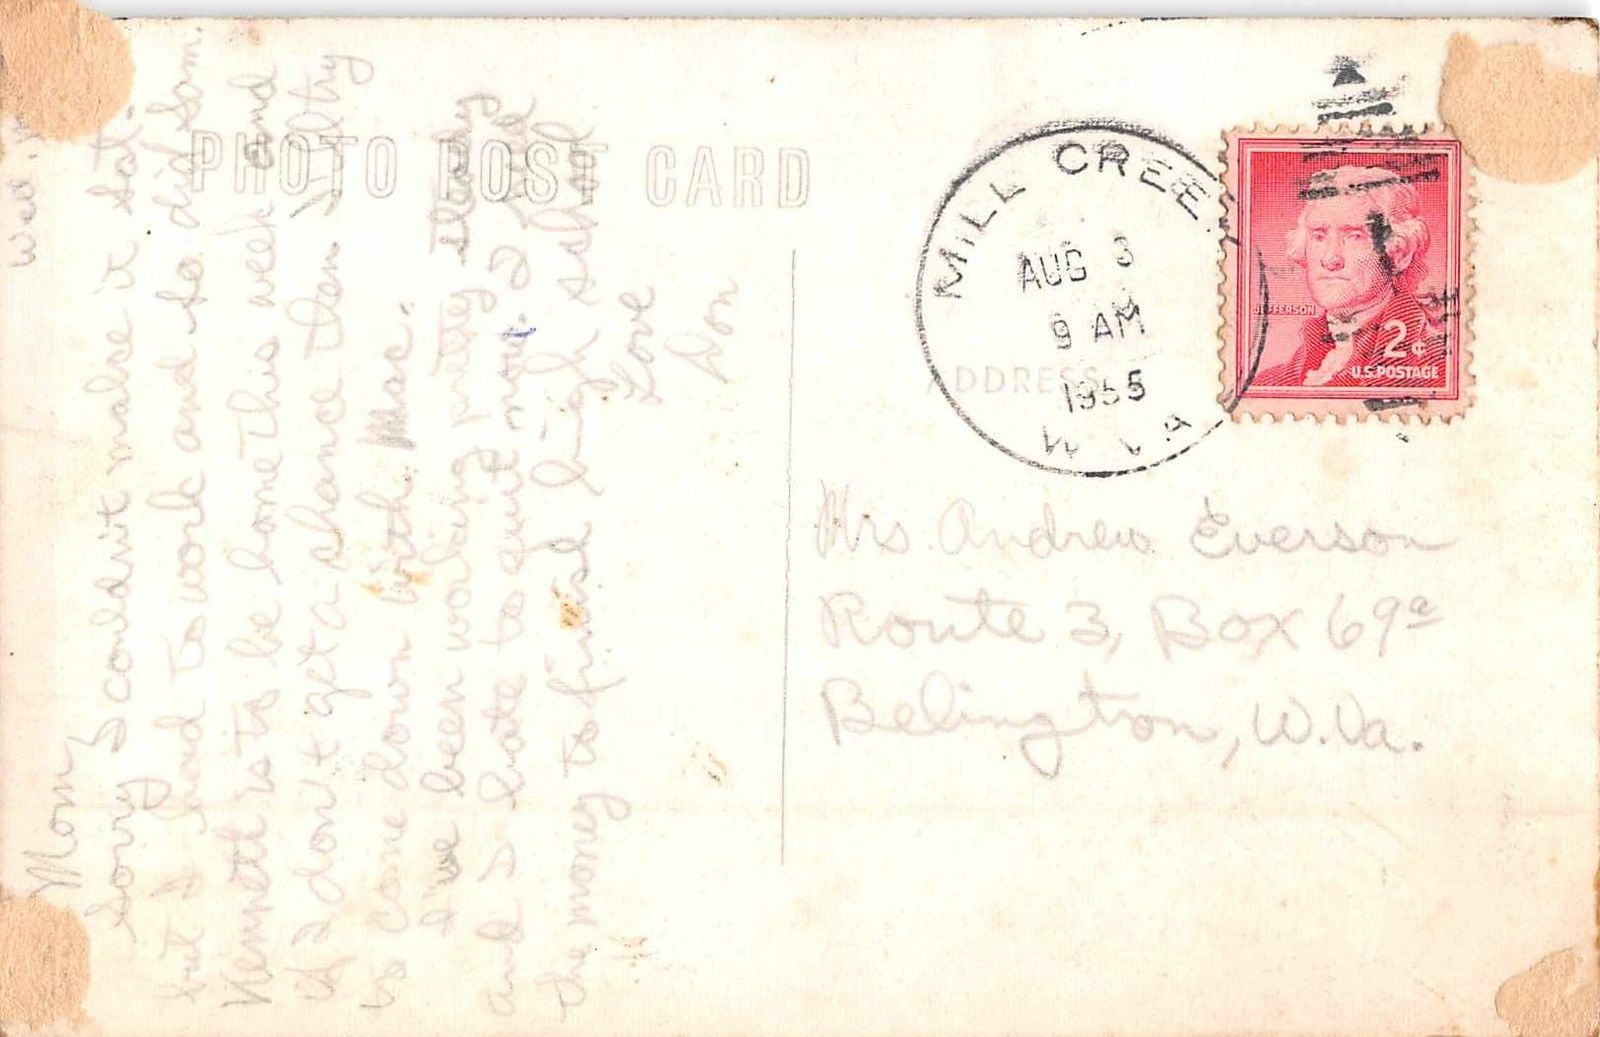 PHOTO POST CARD
ADDRESS
MILL CREE
AUG 3
9 AM
1955
W VA
JEFFERSON
2¢
U.S. POSTAGE
Mrs Andrew Everson
Route 3, Box 69a
Belington, W.Va.
Wed.
Mom,
Sorry I couldn't make it Sat.
but I had to work and so did Sam.
Kenneth is to be home this week and
if I don't get a chance then I'll try
to come down with Mac.
I've been working pretty steady
and I hate to quit now. I need
the money to finish high school
Love
Don